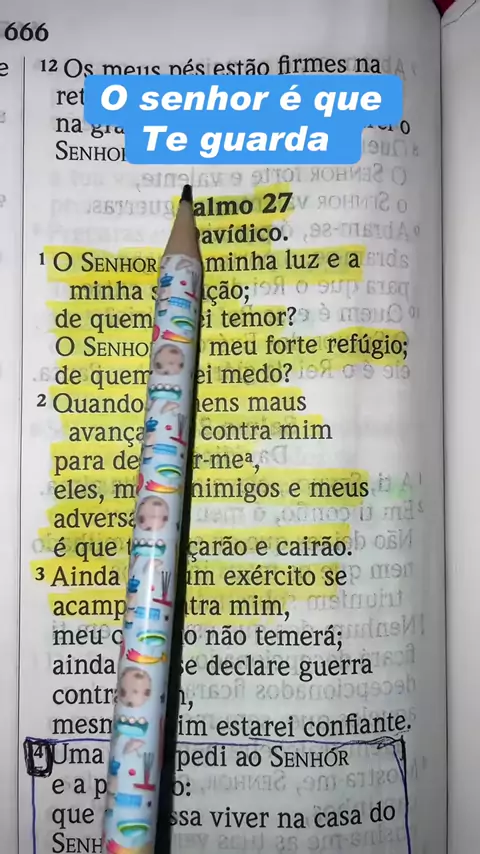 666
e
12 Os meus pés estão firmes na
ret
na gra
SENHO
O senhor é que
Te guarda
almo 27
avídico.
1 O SENHOR minha luz e a
minha s ção;
de quem ei temor?
O SENHO meu forte refúgio;
de quem ei medo?
2 Quando mens maus
avança contra mim
para de r-meª,
eles, m nimigos e meus
adversá
é que çarão e cairão.
3 Ainda um exército se
acamp ntra mim,
meu c o não temerá;
ainda se declare guerra
contra m,
mesm im estarei confiante.
4 Uma pedi ao SENHOR
e a p o:
que ssa viver na casa do
SENH